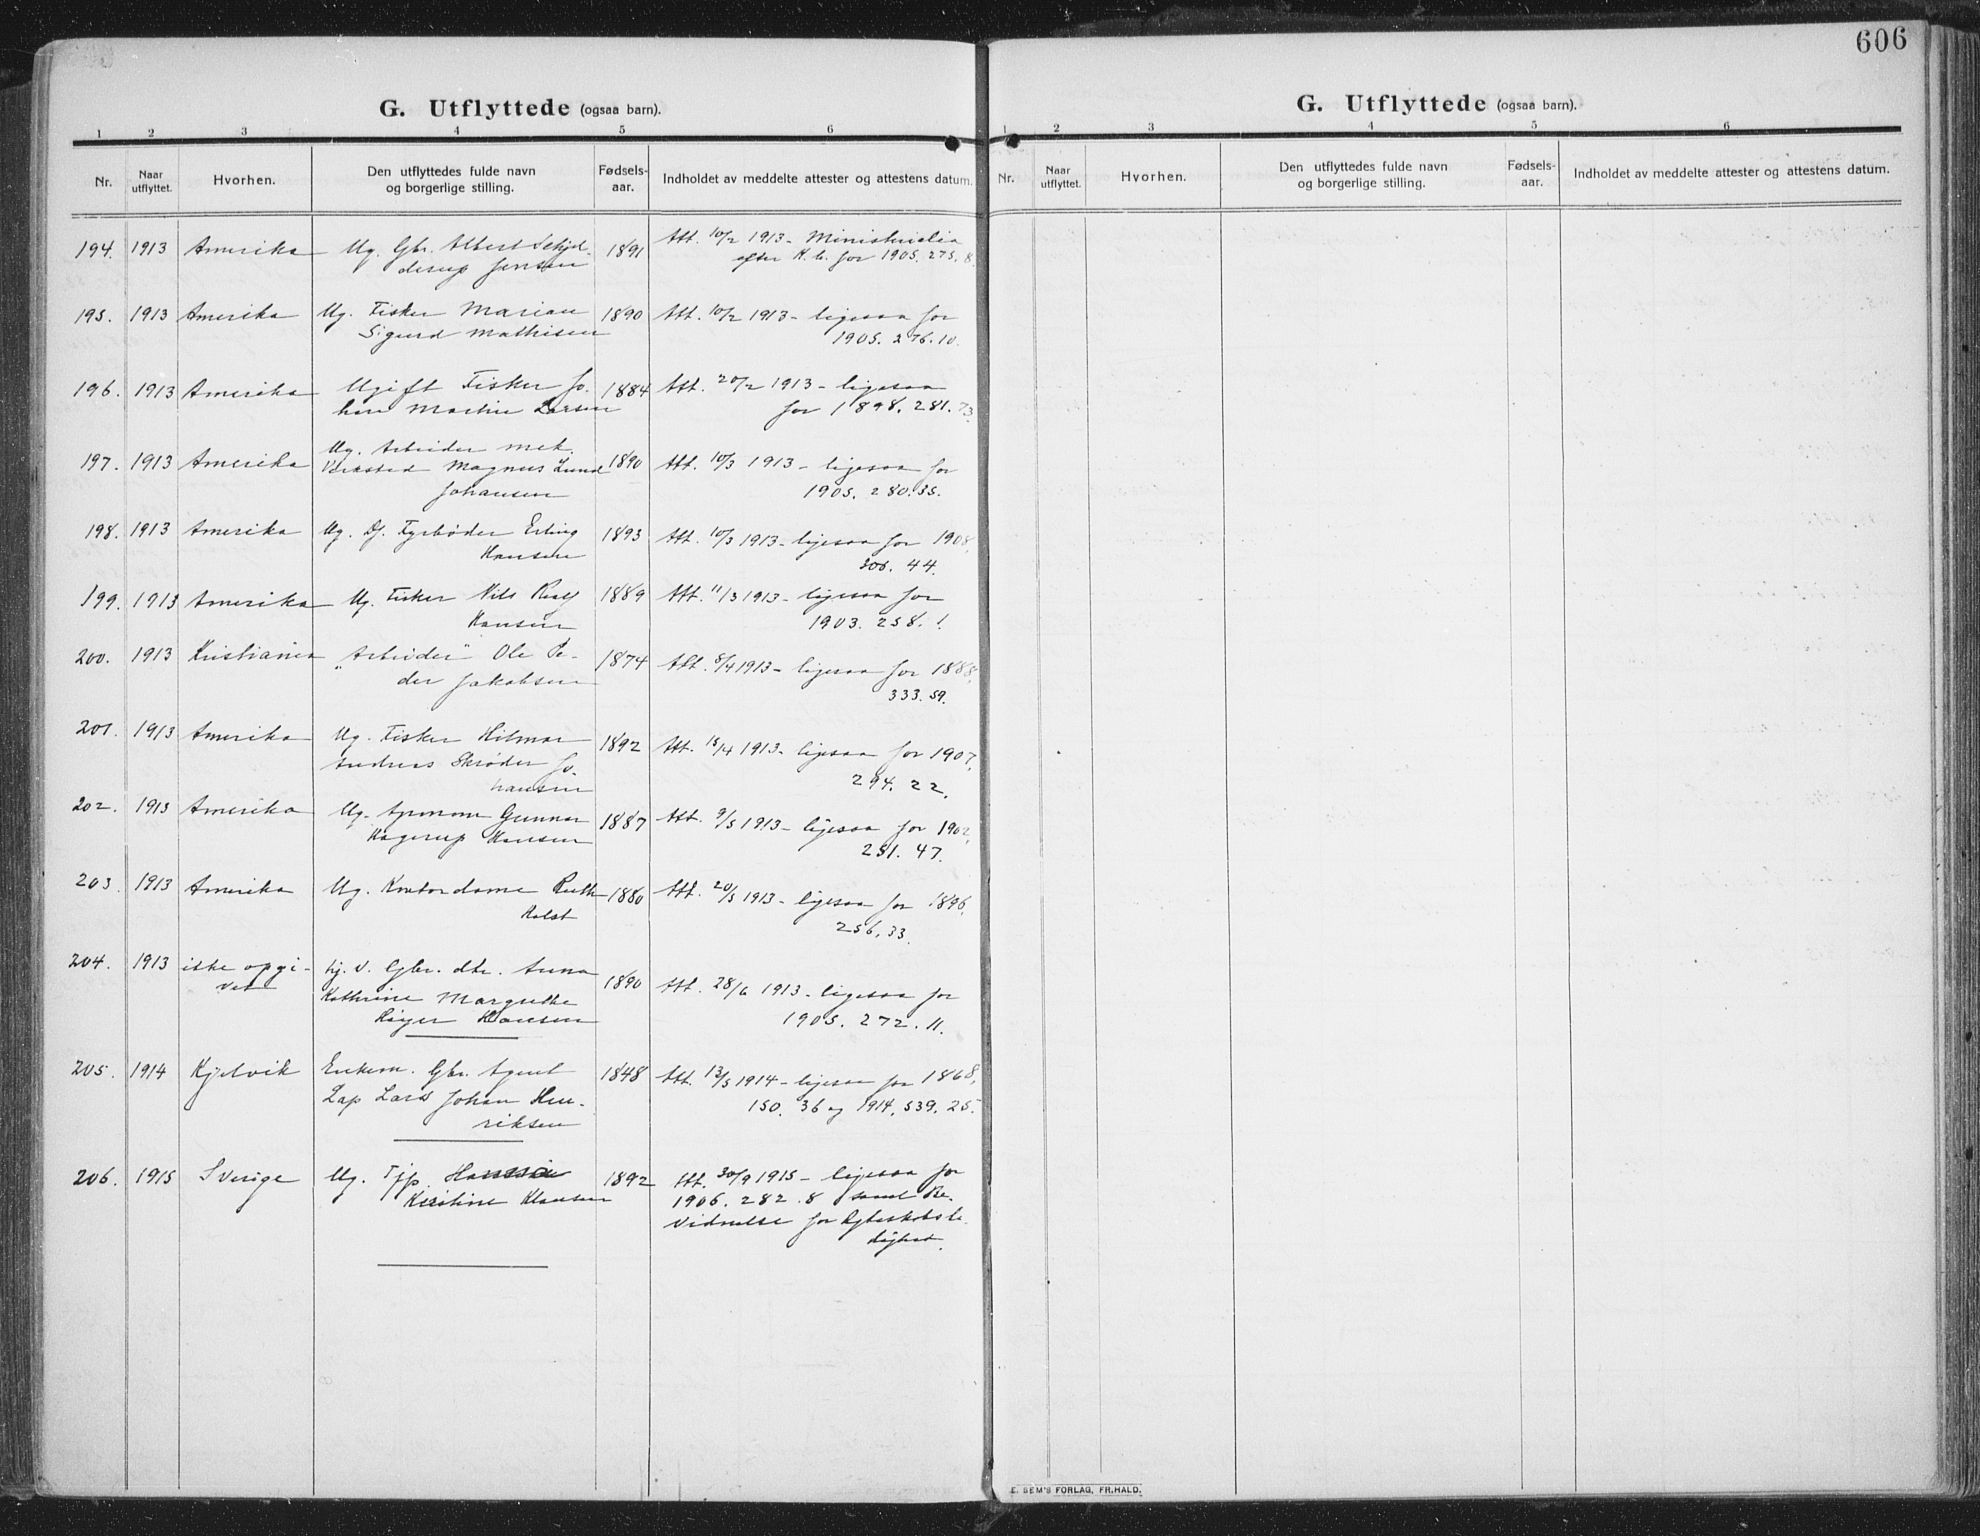 606
G. Utflyttede (ogsaa barn).
1 2 3 4 5 6
Nr. Naar utflyttet. Hvorhen. Den utflyttedes fulde navn og borgerlige stilling. Fødsels-aar. Indholdet av meddelte attester og attestens datum.
194. 1913 Amerika Ug. Gbr. Albert Schjel- 1891 Att. 10/2 1913 - Ministerialia
derup Jensen efter K. b. for 1905. 275. 8.
195. 1913 Amerika Ug. Fisker Marian 1890 Att. 10/2 1913 - ligesaa for
Sigurd Mathisen 1905. 276. 10.
196. 1913 Amerika Ugift Fisker Jo- 1884 Att. 20/2 1913 - ligesaa
han Martin Larsen for 1898. 281. 73.
Ug. Arbeider mek.
197. 1913 Amerika Verksted Magnus Lund 1890 Att. 10/3 1913 - ligesaa for
Johansen 1905. 280. 35.
198. 1913 Amerika Ug. Fyrbøder Erling 1893 Att. 10/3 1913 - ligesaa for 1908,
Hansen 306. 44.
199. 1913 Amerika Ug. Fisker Nils 1889 Att. 11/3 1913 - ligesaa for
Hansen 1903. 258. 1.
200. 1913 Kristiania "Arbeider" Ole Pe- 1874 Att. 8/4 1913 - ligesaa for 1888,
der Jakobsen 333. 59.
201. 1913 Amerika Ug. Fisker Hilmar 1892 Att. 18/4 1913 - ligesaa for 1907,
Andreas Skrøder Jo- 294. 22.
hansen
202. 1913 Amerika Ug. Gunnar 1887 Att. 9/5 1913 - ligesaa for 1902,
Hagerup Hansen 251. 47.
203. 1913 Amerika Ug. Kontordame Ruth 1880 Att. 20/5 1913 - ligesaa for 1896,
Holst 256. 33.
204. 1913 ikke opgi- hj. v. Gbr. dtr. Anna 1890 Att. 28/6 1913 - ligesaa for
vet Kathrine Margrethe 1905. 272. 11.
Røyer Hansen
205. 1914 Kjelvik Enkem. Gbr. Agent 1848 Att. 13/5 1914 - ligesaa for 1868,
Lap Lars Johan Hen- 150. 36 og 1914, 539. 25.
riksen
206. 1915 Sverige Ug. Tjp. 1892 Att. 30/9 1915 - ligesaa for
Kristine Klausen 1906. 282. 8 samt Be-
vidnelse for Egteskabsle-
dighet.
G. Utflyttede (ogsaa barn).
1 2 3 4 5 6
Nr. Naar utflyttet. Hvorhen. Den utflyttedes fulde navn og borgerlige stilling. Fødsels-aar. Indholdet av meddelte attester og attestens datum.
E. SEM'S FORLAG, FR.HALD.